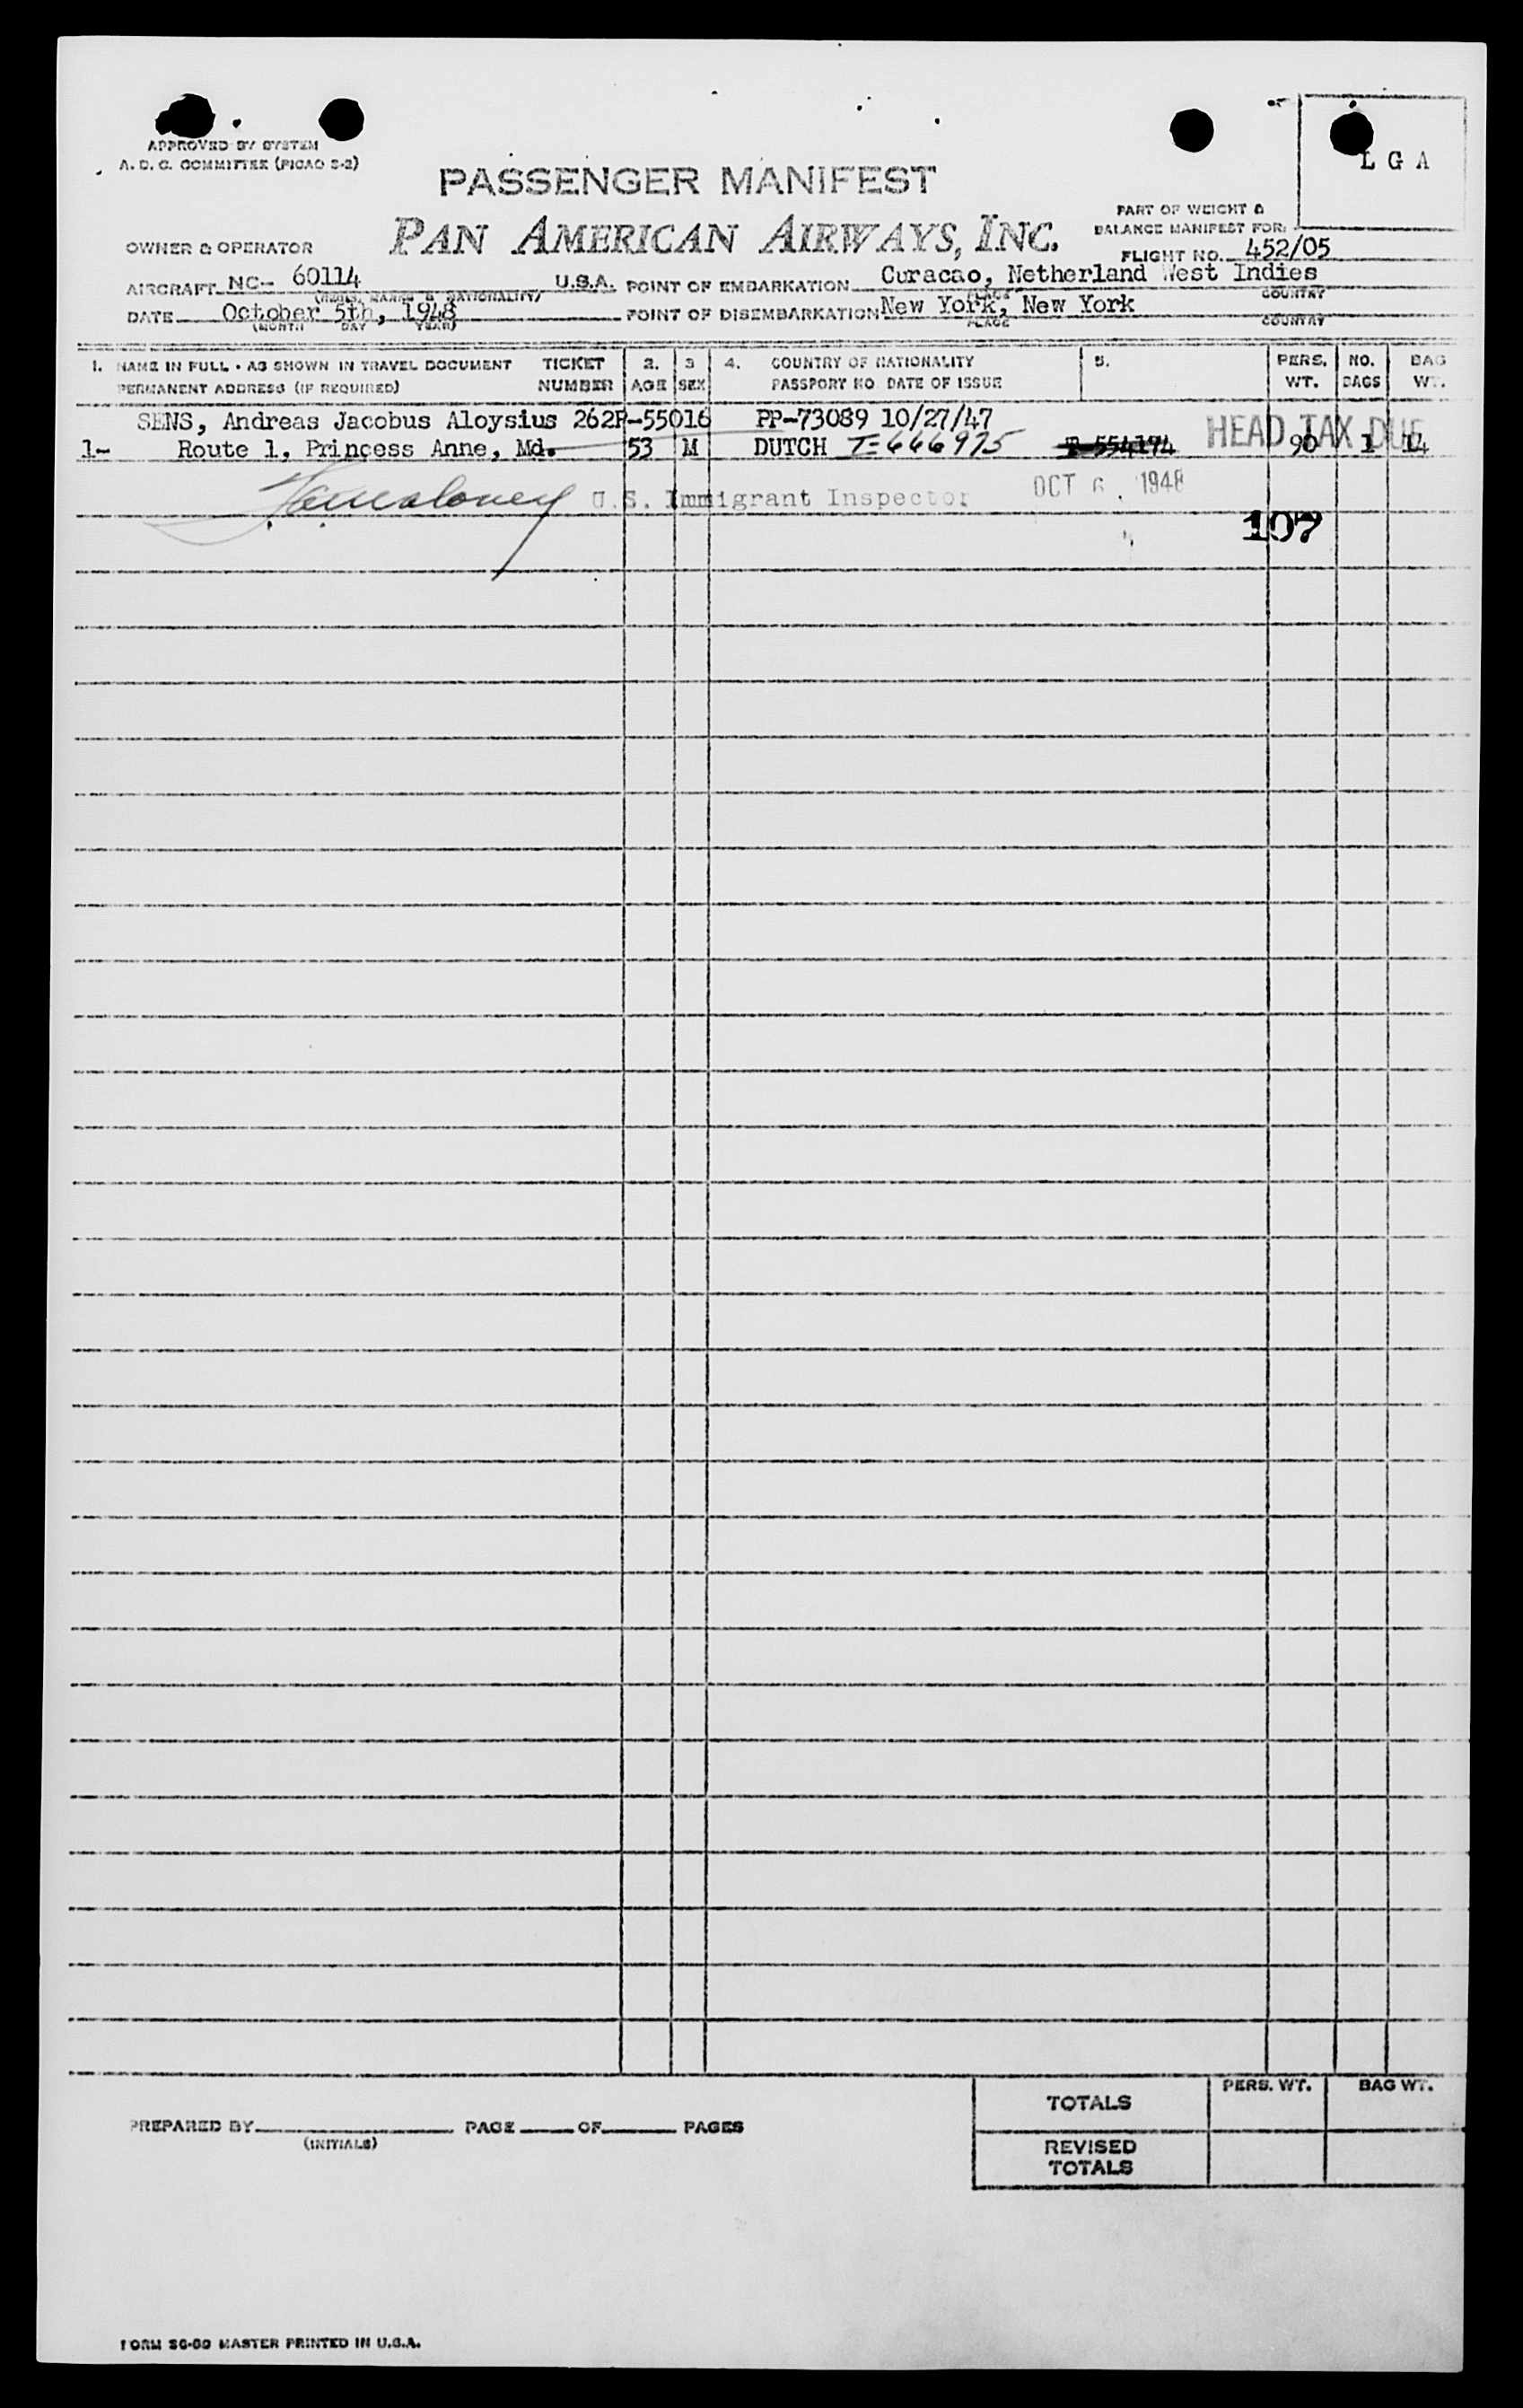 APPROVED BY SYSTEM
A. D. C. COMMITTEE (PICAO S-2)
L G A
PASSENGER MANIFEST
PAN AMERICAN AIRWAYS, INC.
PART OF WEIGHT &
BALANCE MANIFEST FOR:
OWNER & OPERATOR
FLIGHT NO. 452/05
AIRCRAFT NC- 60114 U.S.A. POINT OF EMBARKATION Curacao, Netherland West Indies
(REGIS. MARKS & NATIONALITY) PLACE COUNTRY
DATE October 5th, 1948 POINT OF DISEMBARKATION New York, New York
(MONTH DAY YEAR) PLACE COUNTRY
1. NAME IN FULL - AS SHOWN IN TRAVEL DOCUMENT TICKET 2. 3 4. COUNTRY OF NATIONALITY 5. PERS. NO. BAG
PERMANENT ADDRESS (IF REQUIRED) NUMBER AGE SEX PASSPORT NO DATE OF ISSUE WT. BAGS WT.
SENS, Andreas Jacobus Aloysius 262P-55016 PP-73089 10/27/47
HEAD TAX DUE
1- Route 1, Princess Anne, Md. 53 M DUTCH T-666975 T-554174 90 1 14
U.S. Immigrant Inspector OCT 6 1948
107
TOTALS PERS. WT. BAG WT.
PREPARED BY PAGE OF PAGES
(INITIALS)
REVISED
TOTALS
FORM SG-60 MASTER PRINTED IN U.S.A.